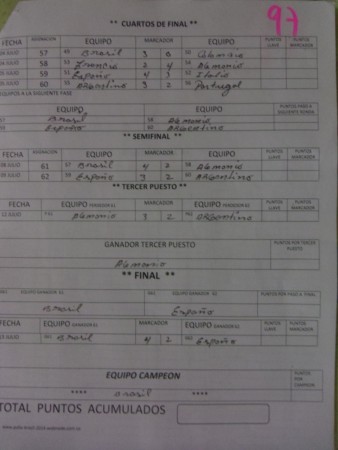 97
** CUARTOS DE FINAL **
FECHA ASIGNACION EQUIPO MARCADOR EQUIPO PUNTOS LLAVE PUNTOS MARCADOR
JULIO 57 Brasil 3 Colombia
JULIO 58 Francia 2 4 Alemania
JULIO 59 España 4 3 Italia
JULIO 60 Argentina 3 2 Portugal
EQUIPOS A LA SIGUIENTE FASE
EQUIPO EQUIPO PUNTOS PASO A SIGUIENTE RONDA
57 Brasil 58 Alemania
España Argentina
** SEMIFINAL **
FECHA EQUIPO MARCADOR EQUIPO PUNTOS LLAVE PUNTOS MARCADOR
JULIO 61 57 Brasil 4 2 58 Alemania
JULIO 62 España 3 2 Argentina
** TERCER PUESTO **
FECHA EQUIPO PERDEDOR 61 MARCADOR EQUIPO PERDEDOR 62 PUNTOS LLAVE PUNTOS MARCADOR
12 JULIO P61 Alemania 3 2 P62 Argentina
GANADOR TERCER PUESTO PUNTOS POR TERCER PUESTO
Alemania
** FINAL **
EQUIPO GANADOR 61 EQUIPO GANADOR 62 PUNTOS POR PASO A FINAL
Brasil España
FECHA EQUIPO GANADOR 61 MARCADOR EQUIPO GANADOR 62 PUNTOS LLAVE PUNTOS MARCADOR
JULIO Brasil 4 2 España
EQUIPO CAMPEON PUNTOS POR CAMPEON
**** Brasil ****
TOTAL PUNTOS ACUMULADOS